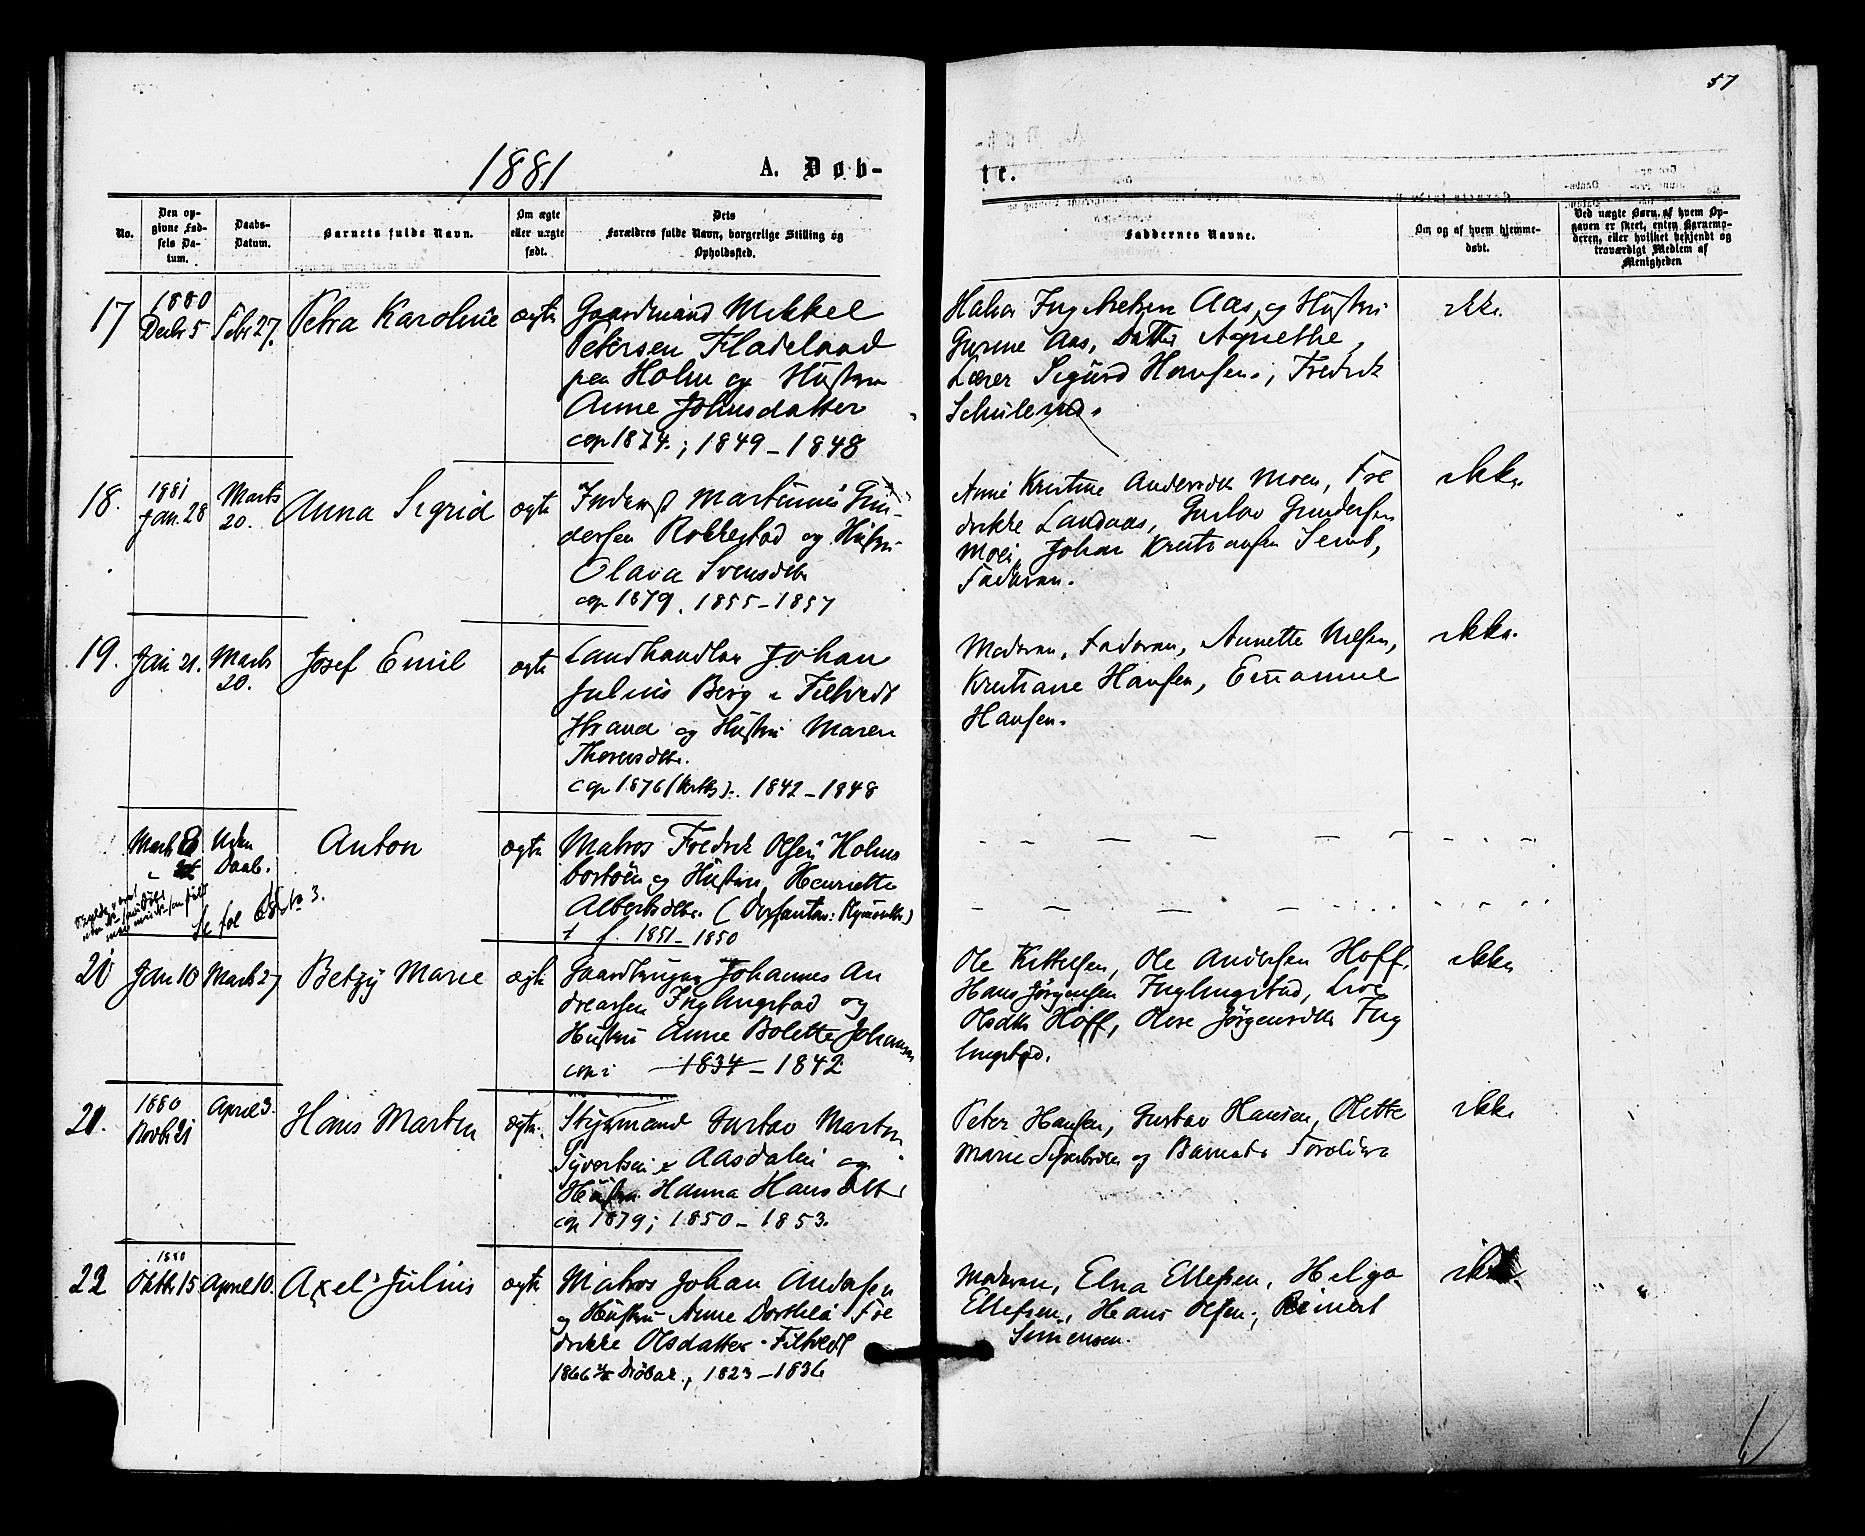 57
1881
A. Døb-
te.
No.
Den op-
givne Fød-
sels Da-
tum.
Daabs-
Datum.
Barnets fulde Navn.
Om ægte
eller uægte
født.
Dets
Forældres fulde Navn, borgerlige Stilling og
Opholdssted.
Faddernes Navne.
Om og af hvem hjemme-
døbt.
Ved uægte Børn, af hvem Op-
gaven er skeet, enten Barnemo-
deren, eller hvilket bekjendt og
troværdigt Medlem af
Menigheden
17
1880
Decbr 5
Febr 27.
Petra Karoline
ægte
Gaardmand Mikkel
Petersen Fladeland
paa Holm og Hustru
Anne Johnsdatter
cop 1874.; 1849 - 1848
Aas, og Hustru
Aas, Datter Agnethe,
Lærer Sigurd Hansen, Fredrik
ikke.
18.
1881
Jan. 28
Marts
20.
Anna Sigrid
ægte
Inderst Martinius Gun-
dersen Rokkestad og Hustru
Olava Svensdtr
cop 1879. 1855 - 1857
Anne Kristine Andersdtr Moen, Fre
drikke Landaas, Gustav Gundersen
Moen, Johan Kristiansen Semb,
Faderen.
ikke.
19.
Jan 21.
Marts
20.
Josef Emil
ægte
Landhandler Johan
Julius Berg i Filtvedt
Strand og Hustru Maren
Thorersdtr.
cop 1876 1842 - 1848
Moderen, Faderen, Annette Nilsen,
Kristiane Hansen, Emanuel
Hansen.
ikke.
Marts 8
Uden
Daab.
Anton
ægte
Matros Fredrik Olsen Holms
og Hustru Henriette
Albertsdtr.
f. 1851 - 1850
Se fol No 3.
20
Jan 10
Marts 27
Betzy Marie
ægte
Gaardbruger Johannes An
dreassen Fuglingstad og
Hustru Anne Bolette Johansen
cop i 1834 - 1842
Ole Kittelsen, Ole Andersen Hoff,
Hans Jørgensen Fuglingstad,
Olsdtr Hoff, Jørgensdtr Fug
lingstad.
ikke
21.
1880
Novbr 21
April 3.
Hans Martin
ægte.
Styrmand Gustav Martin
Syvertsen i Aasdalen og
Hustru Hanna Hansdtr
cop 1879; 1850 - 1853.
Peter Hansen, Gustav Hansen, Olette
Marie og Barnets Forældre
ikke
22
1880
Oktbr 15
April 10.
Axel Julius
ægte
Matros Johan Andersen
og Hustru Anne Dorthea Fre
drikke Olsdatter Filtvedt
1866 Drøbak, 1823 - 1836
Moderen, Elna Ellefsen, Helga
Ellefsen, Hans Olsen, Reinert
Simensen.
ikke.